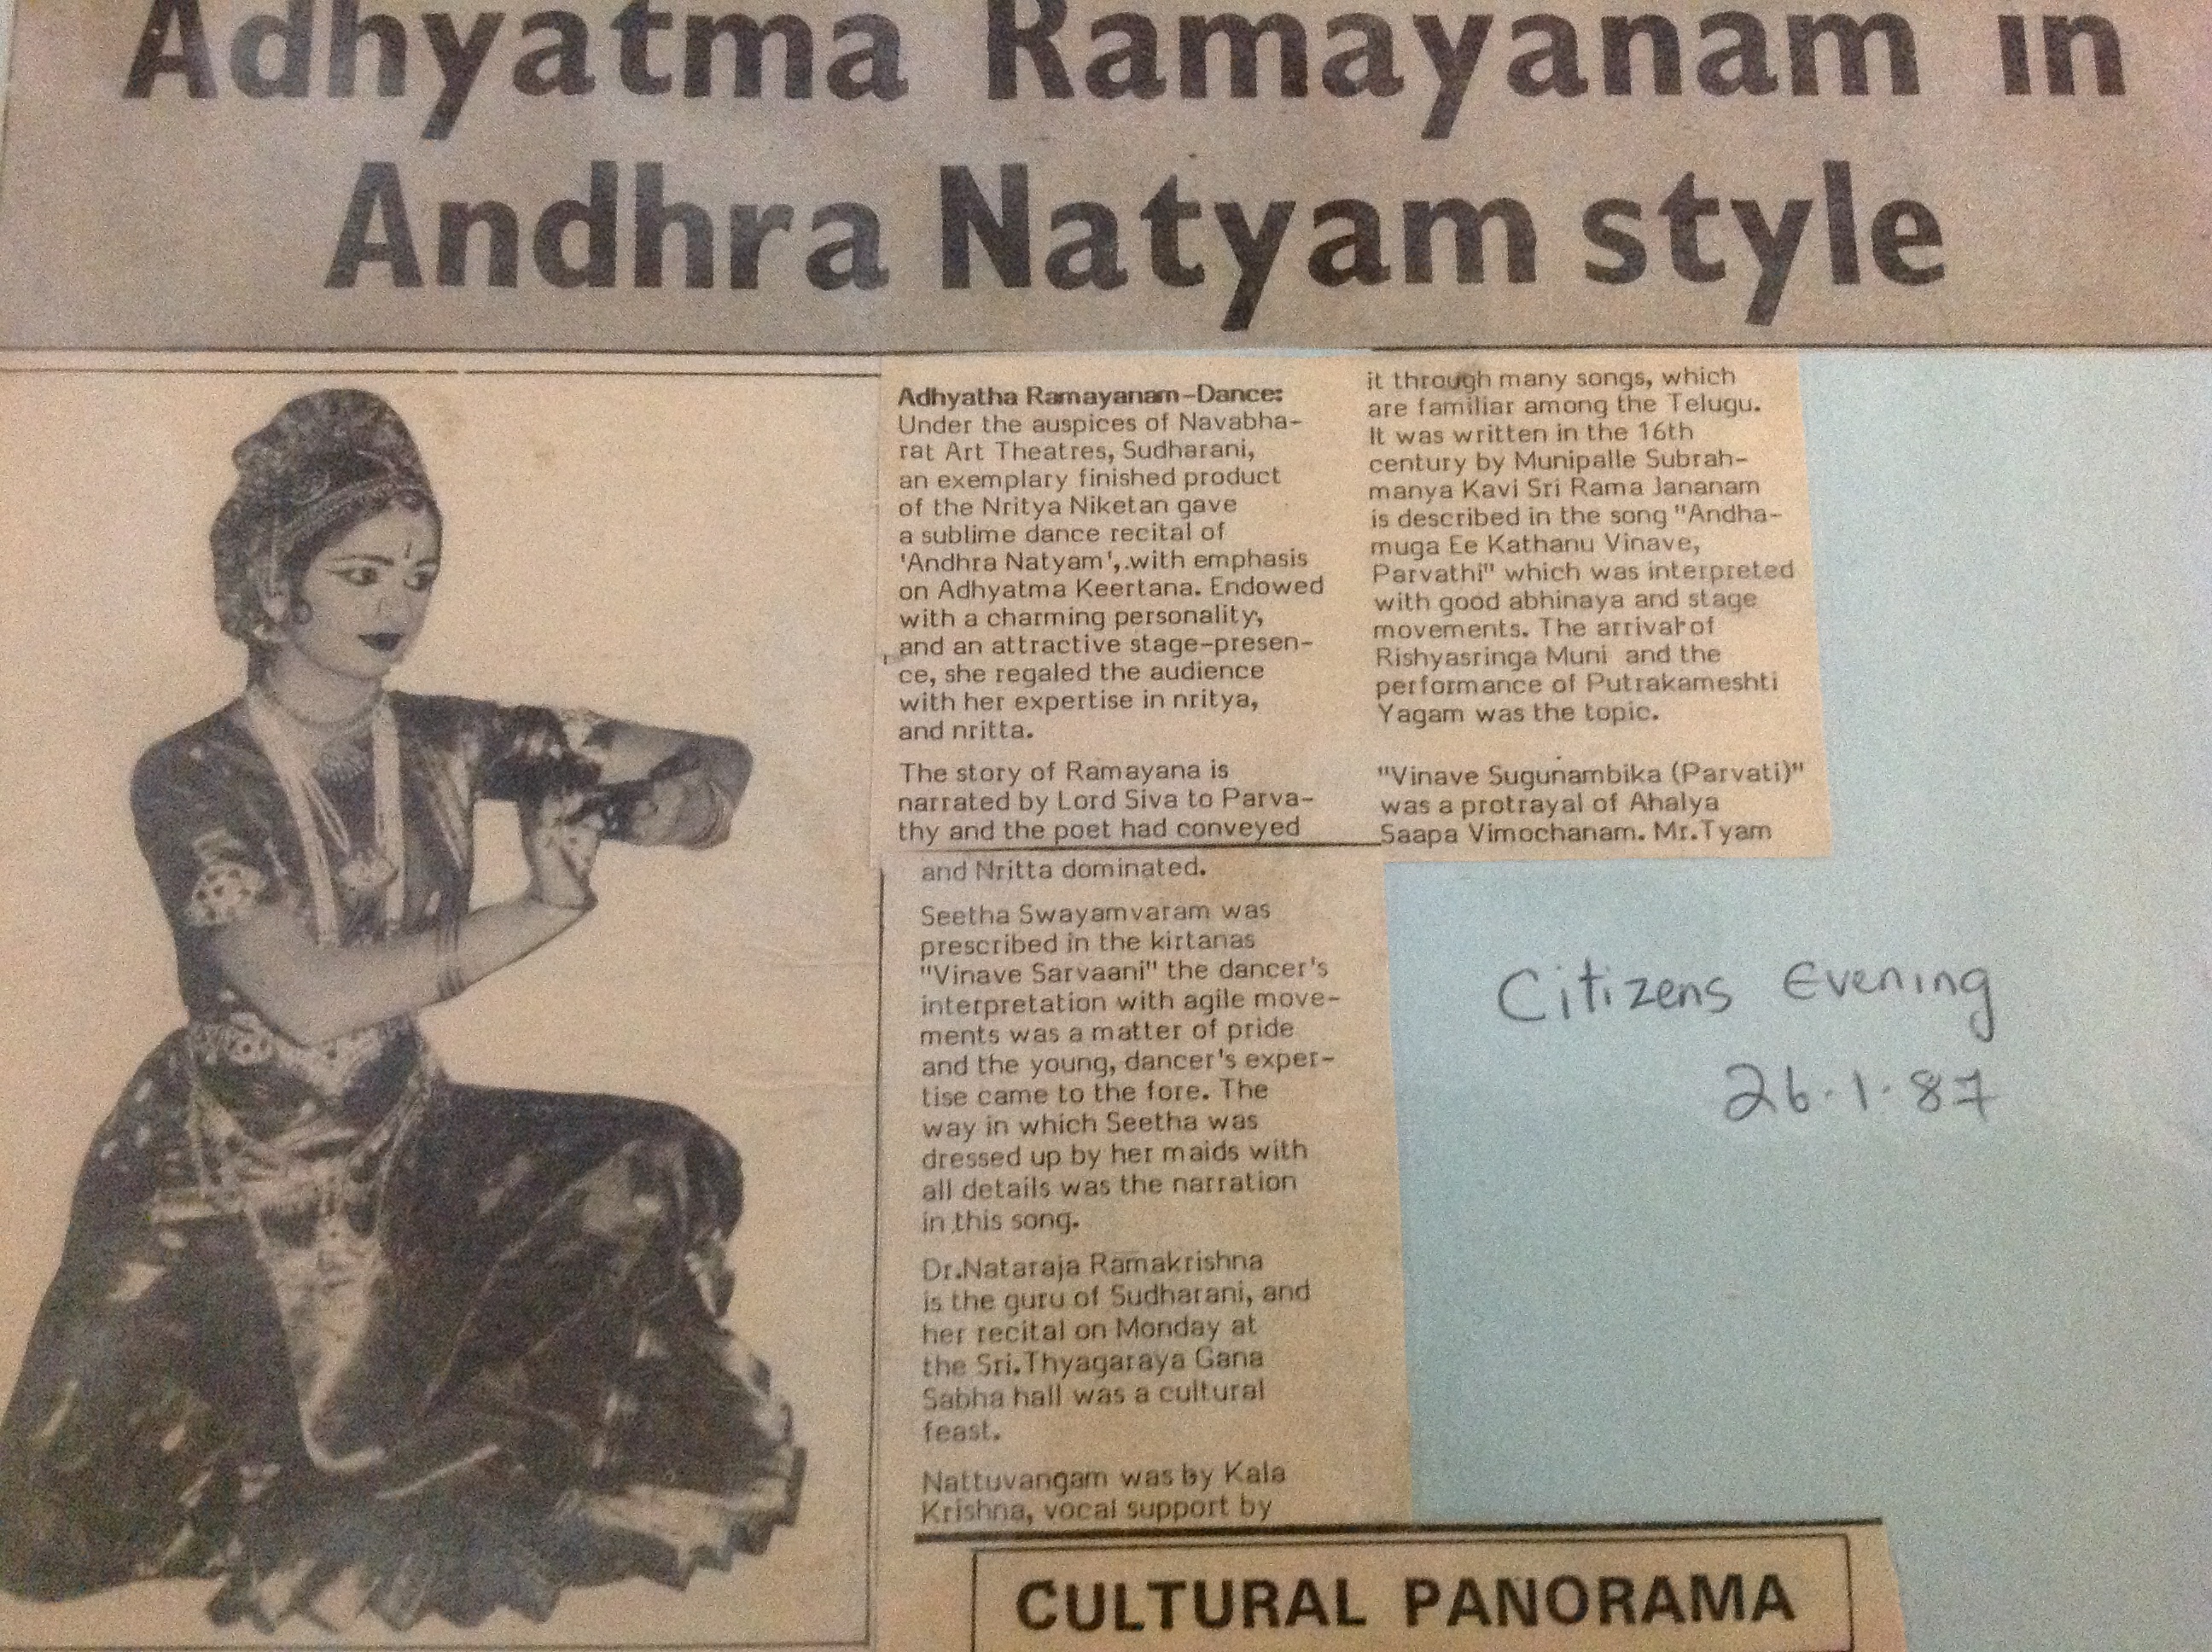 Adhyatma Ramayanam in
Andhra Natyam style
Adhyatha Ramayanam-Dance:
Under the auspices of Navabha-
rat Art Theatres, Sudharani,
an exemplary finished product
of the Nritya Niketan gave
a sublime dance recital of
'Andhra Natyam', with emphasis
on Adhyatma Keertana. Endowed
with a charming personality,
and an attractive stage-presen-
ce, she regaled the audience
with her expertise in nritya,
and nritta.
The story of Ramayana is
narrated by Lord Siva to Parva-
thy and the poet had conveyed
it through many songs, which
are familiar among the Telugu.
It was written in the 16th
century by Munipalle Subrah-
manya Kavi Sri Rama Jananam
is described in the song "Andha-
muga Ee Kathanu Vinave,
Parvathi" which was interpreted
with good abhinaya and stage
movements. The arrival of
Rishyasringa Muni and the
performance of Putrakameshti
Yagam was the topic.
"Vinave Sugunambika (Parvati)"
was a protrayal of Ahalya
Saapa Vimochanam. Mr.Tyam
and Nritta dominated.
Seetha Swayamvaram was
prescribed in the kirtanas
"Vinave Sarvaani" the dancer's
interpretation with agile move-
ments was a matter of pride
and the young, dancer's exper-
tise came to the fore. The
way in which Seetha was
dressed up by her maids with
all details was the narration
in this song.
Dr.Nataraja Ramakrishna
is the guru of Sudharani, and
her recital on Monday at
the Sri.Thyagaraya Gana
Sabha hall was a cultural
feast.
Nattuvangam was by Kala
Krishna, vocal support by
Citizens Evening
26.1.87
CULTURAL PANORAMA